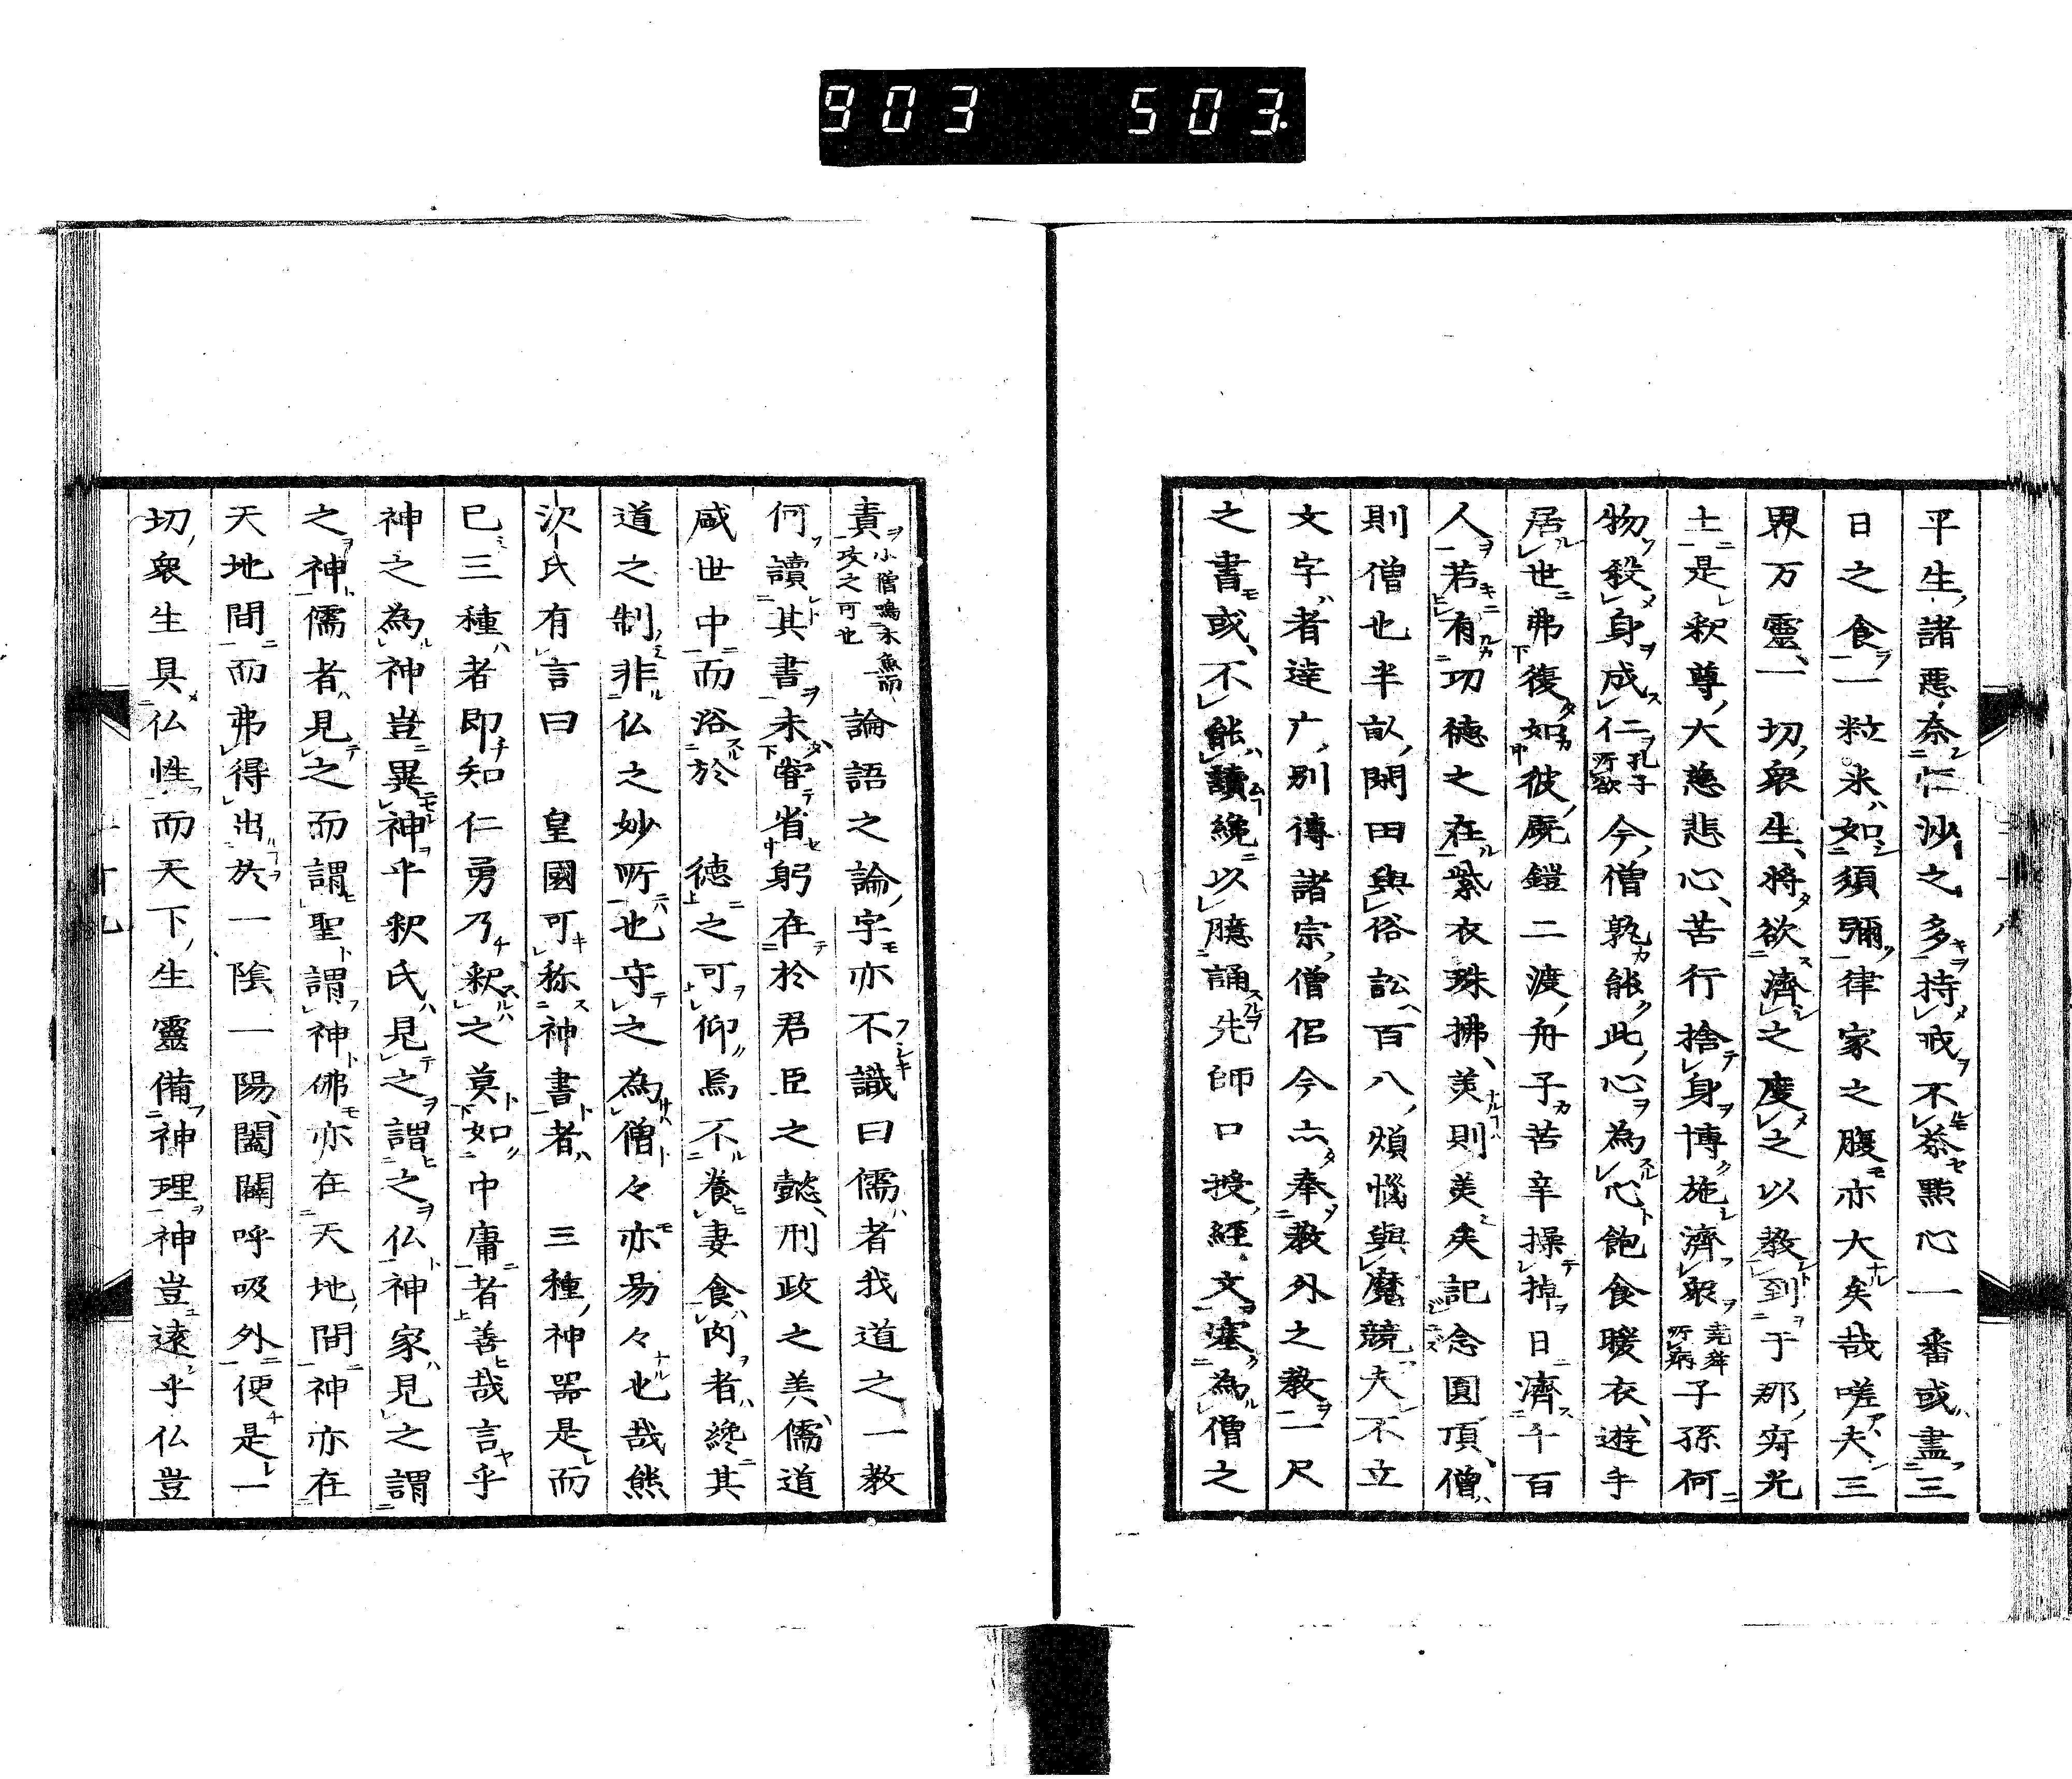 903 503.
平生諸悪奈仁沙之多持戒不忝點心一番或盡三
日之食一粒米如須彌律家之腹亦大矣哉嗟夫三
界万靈一切衆生将欲濟之度之以教到于那寂光
土是釈尊大慈悲心苦行捨身博施濟衆堯舜所病子孫何
物殺身成仁孔子所欲今僧孰能此心為心飽食暖衣遊手
居世弗復如彼厩鎧二渡舟子苦辛操掉日濟千百
人若有功徳之在紫衣珠拂美則美矣記念圓頂僧
則僧也半畝閑田與俗訟百八煩惱與魔競夫不立
文字者達广別傳諸宗僧侶今亦奉教外之教一尺
之書或不能讀纔以臆誦先師口授經文塞為僧之
責小僧鳴木魚而攻之可也論語之論字亦不識曰儒者我道之一教
何讀其書未嘗省躬在於君臣之懿刑政之美儒道
咸世中而浴於 徳之可仰焉不養妻食肉者纔其
道之制非仏之妙所也守之為僧々亦易々也哉熊
沢氏有言曰 皇國可称神書者 三種神器是而
已三種者即知仁勇乃釈之莫如中庸者善哉言乎
神之為神豈異神乎釈氏見之謂之仏神家見之謂
之神儒者見之而謂聖謂神佛亦在天地間神亦在
天地間而弗得出於一陰一陽闔闢呼吸外便是一
切衆生具仏性而天下生靈備神理神豈遠乎仏豈